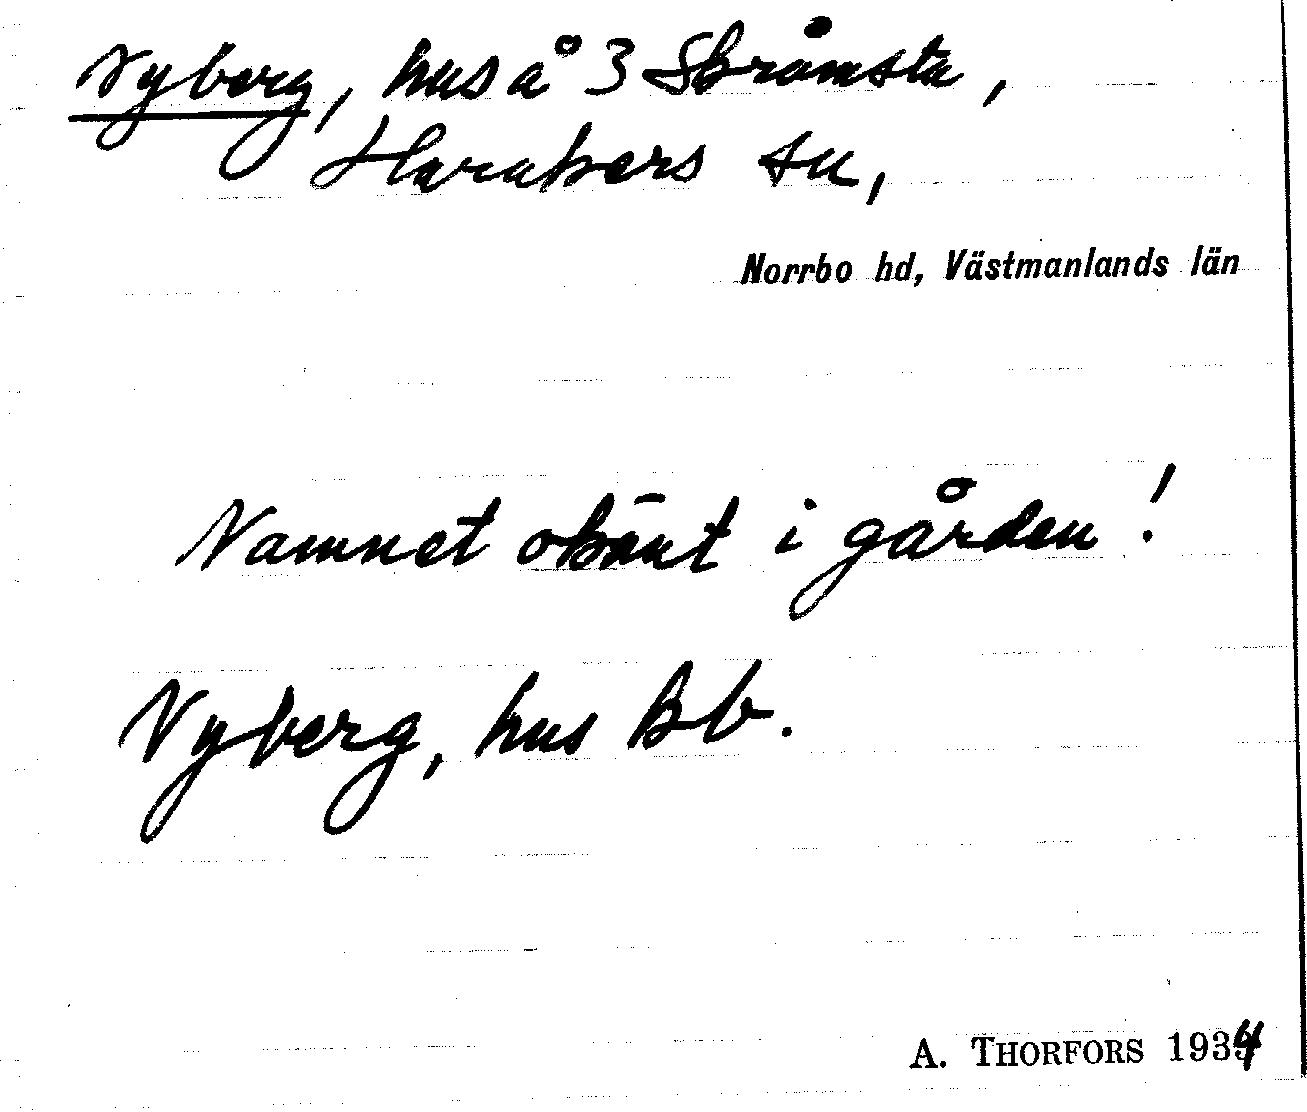 Nyberg, hus å 3 Skråmsta,
Harakers sn,
Norrbo hd, Västmanlands län
Namnet okänt i gården!
Nyberg, hus Bb.
A. THORFORS 1934